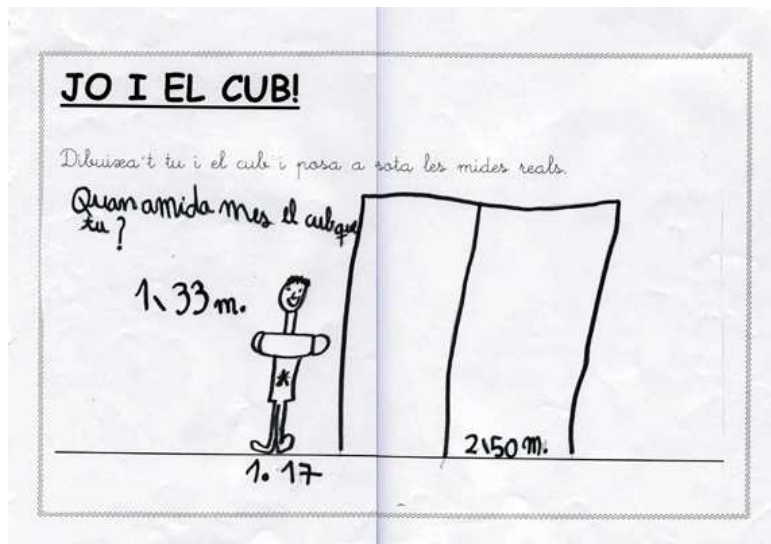 JO I EL CUB!
Dibuixa't tu i el cub i posa a sota les mides reals.
Quan amida mes el cub que
tu?
1\33 m.
2\50 m.
1.17